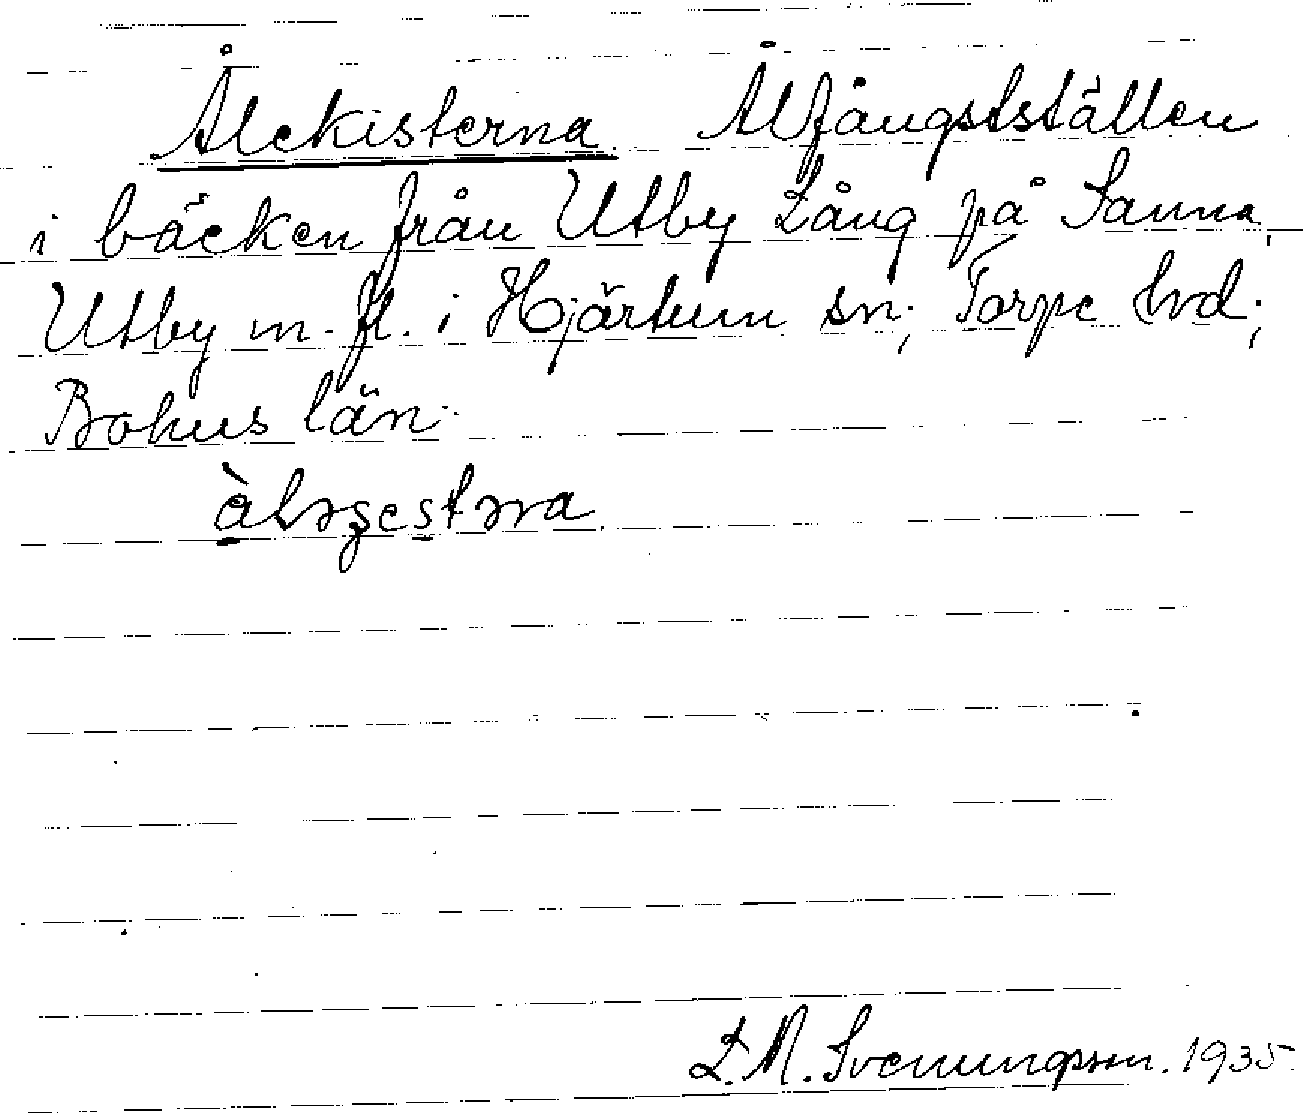 Ålekisterna Ålfångstställen
i bäcken från Utby Lång på Sanna,
Utby m. fl. i Hjärtum sn; Torpe hd;
Bohus län.
L. M. Svenungsson. 1935